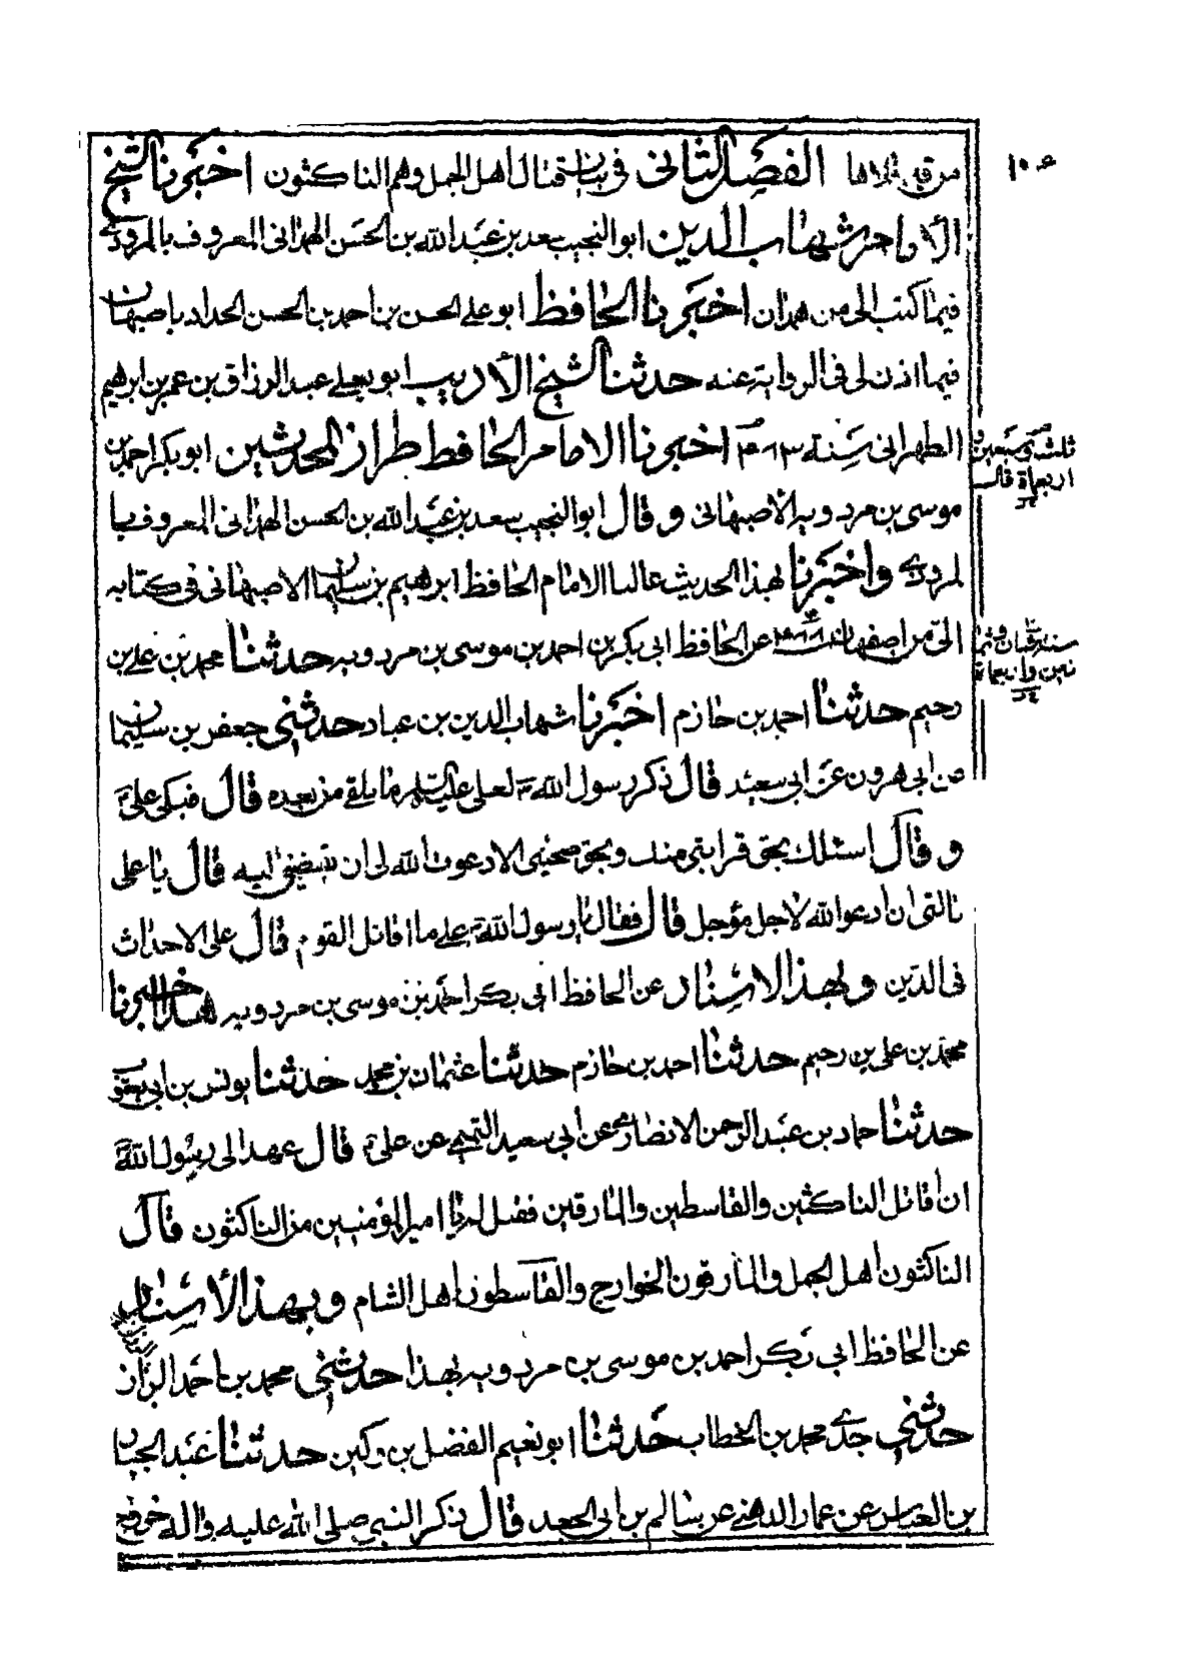 ١٠٦
من قبل ثلاها الفصل الثانى فى بيان قتال اهل الجمل وهم الناكثون اخبرنا الشيخ
الامام شهاب الدين ابو النجيب سعد بن عبد الله بن الحسن الهمدانى المعروف بالمروزى
فيما كتب الى من همدان اخبرنا الحافظ ابو على الحسن بن احمد بن الحسن الحداد باصبهان
فيما اذن لى فى الرواية عنه حدثنا الشيخ الأديب ابو يعلى عبد الرزاق بن عمر بن ابراهيم
الطهرانى سنة ٤٧٣ اخبرنا الامام الحافظ طراز المحدثين ابو بكر احمد بن
ثلثة وسبعين و
اربعمائة قال
موسى بن مردويه الاصبهانى و قال ابو النجيب سعد بن عبد الله بن الحسن الهمدانى المعروف با
لمروزى واخبرنا بهذا الحديث عاليا الامام الحافظ ابراهيم بن سليمان الاصبهانى فى كتابه
الى من اصفهان سنة ٤٨٨ عن الحافظ ابى بكر بن احمد بن موسى بن مردويه حدثنا محمد بن على بن
سنة ثمان وثما
نين واربعمائة
رحيم حدثنا احمد بن حازم اخبرنا شهاب الدين بن عباد حدثنى جعفر بن سليمان
عن ابى هرون عن ابى سعيد قال ذكر رسول الله ص لعلى عليه السلم ما يلقى من بعده قال فبكى على ع
و قال اسئلك بحق قرابتى منك وبحق صحبتى الا دعوت الله لى ان يقبضنى ليه قال يا على
تالنى ان ادعوا الله لاجل مؤجل قال فقال يا رسول الله ص على ما اقاتل القوم قال على الاحداث
فى الدين وبهذا الاسناد عن الحافظ ابى بكر احمد بن موسى بن مردويه هذا اخبرنا
محمد بن على بن رحيم حدثنا احمد بن حازم حدثنا عثمان بن محمد حدثنا يونس بن ابى يعقو
حدثنا حماد بن عبد الرحمن الانصارى عن ابى سعيد التيمى عن على ع قال عهد الى رسول الله ص
ان اقاتل الناكثين والقاسطين والمارقين فقيل له يا امير المؤمنين من الناكثون قال
الناكثون اهل الجمل والمارقون الخوارج والقاسطون اهل الشام وبهذا الأسناد
عن الحافظ ابى بكر احمد بن موسى بن مردويه بهذا حدثنى محمد بن احمد الرزاز
حدثنى جدى محمد بن الخطاب حدثنا ابو نعيم الفضل بن وكين حدثنا عبد الجبار
بن العباس عن عمار الدهنى عن سالم بن ابى الجعد قال ذكر النبى صلى الله عليه واله خروج